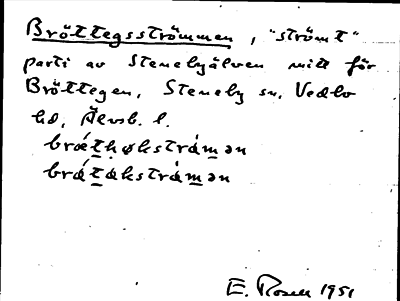 Bröttegsströmmen, "strömt"
parti av Stenebyälven mitt för
Bröttegen, Steneby sn, Vedbo
hd, Älvsb. l.
bráthǝkstrámǝn
brátakstrámǝn
E. Rosell 1951